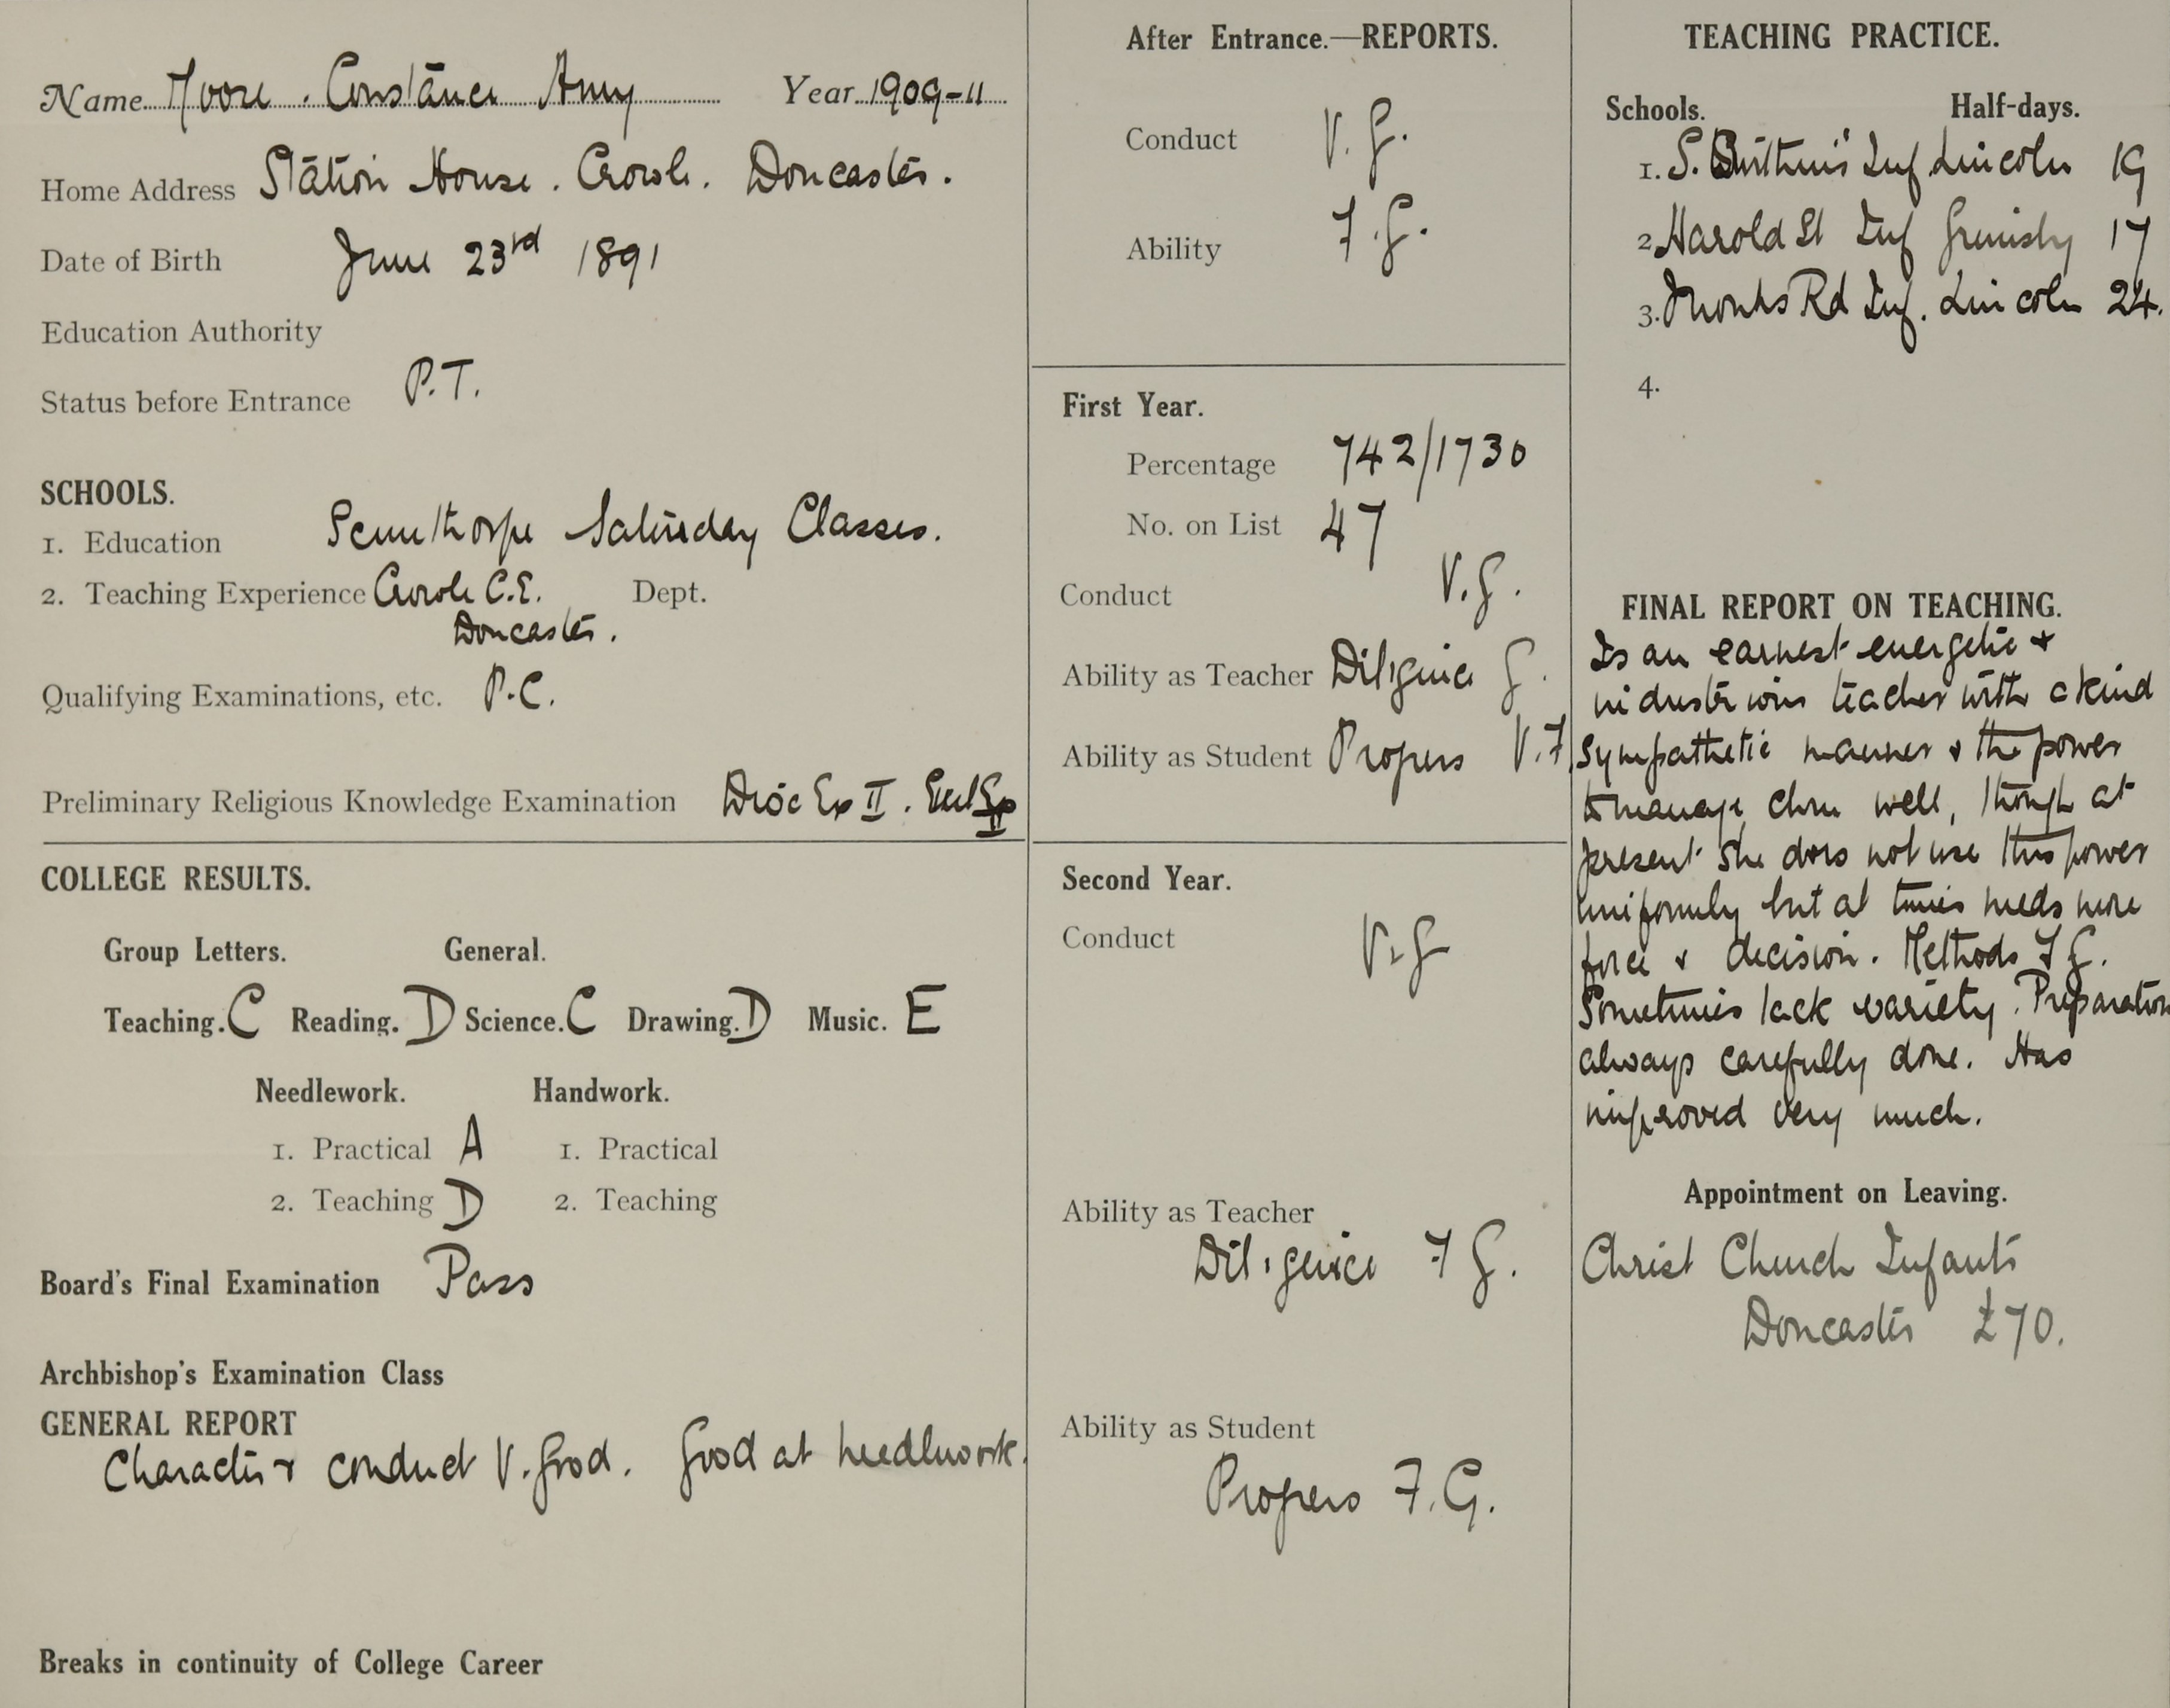 Name Moore. Constance Amy Year 1909-11
Home Address Station House. Crowle. Doncaster.
Date of Birth June 23rd 1891
Education Authority
Status before Entrance P.T.
SCHOOLS.
1. Education Scunthorpe Saturday Classes.
2. Teaching Experience Crowle C.E. Dept.
Doncaster.
Qualifying Examinations, etc. P.C.
Preliminary Religious Knowledge Examination Dioc Ex II.
COLLEGE RESULTS.
Group Letters. General.
Teaching. C Reading. D Science. C Drawing. D Music. E
Needlework. Handwork.
1. Practical A 1. Practical
2. Teaching D 2. Teaching
Board's Final Examination Pass
Archbishop's Examination Class
GENERAL REPORT
Character & conduct V. Good. Good at needlework.
Breaks in continuity of College Career
After Entrance.—REPORTS.
Conduct V. G.
Ability F. G.
First Year.
Percentage 742/1730
No. on List 47
Conduct V. G.
Ability as Teacher Diligence G.
Ability as Student Progress V. F.
Second Year.
Conduct V. G
Ability as Teacher
Diligence F G.
Ability as Student
Progress F. G.
TEACHING PRACTICE.
Schools. Half-days.
1. S. Swithin's Inf Lincoln 19
2. Harold St Inf Grimsby 17
3. Monks Rd Inf. Lincoln 24.
4.
FINAL REPORT ON TEACHING.
Is an earnest energetic &
industrious teacher with a kind
sympathetic manner & the power
to manage chn well, though at
present she does not use this power
uniformly but at times needs more
force & decision. Methods F G.
Sometimes lack variety. Preparation
always carefully done. Has
improved very much.
Appointment on Leaving.
Christ Church Infants
Doncaster £70.